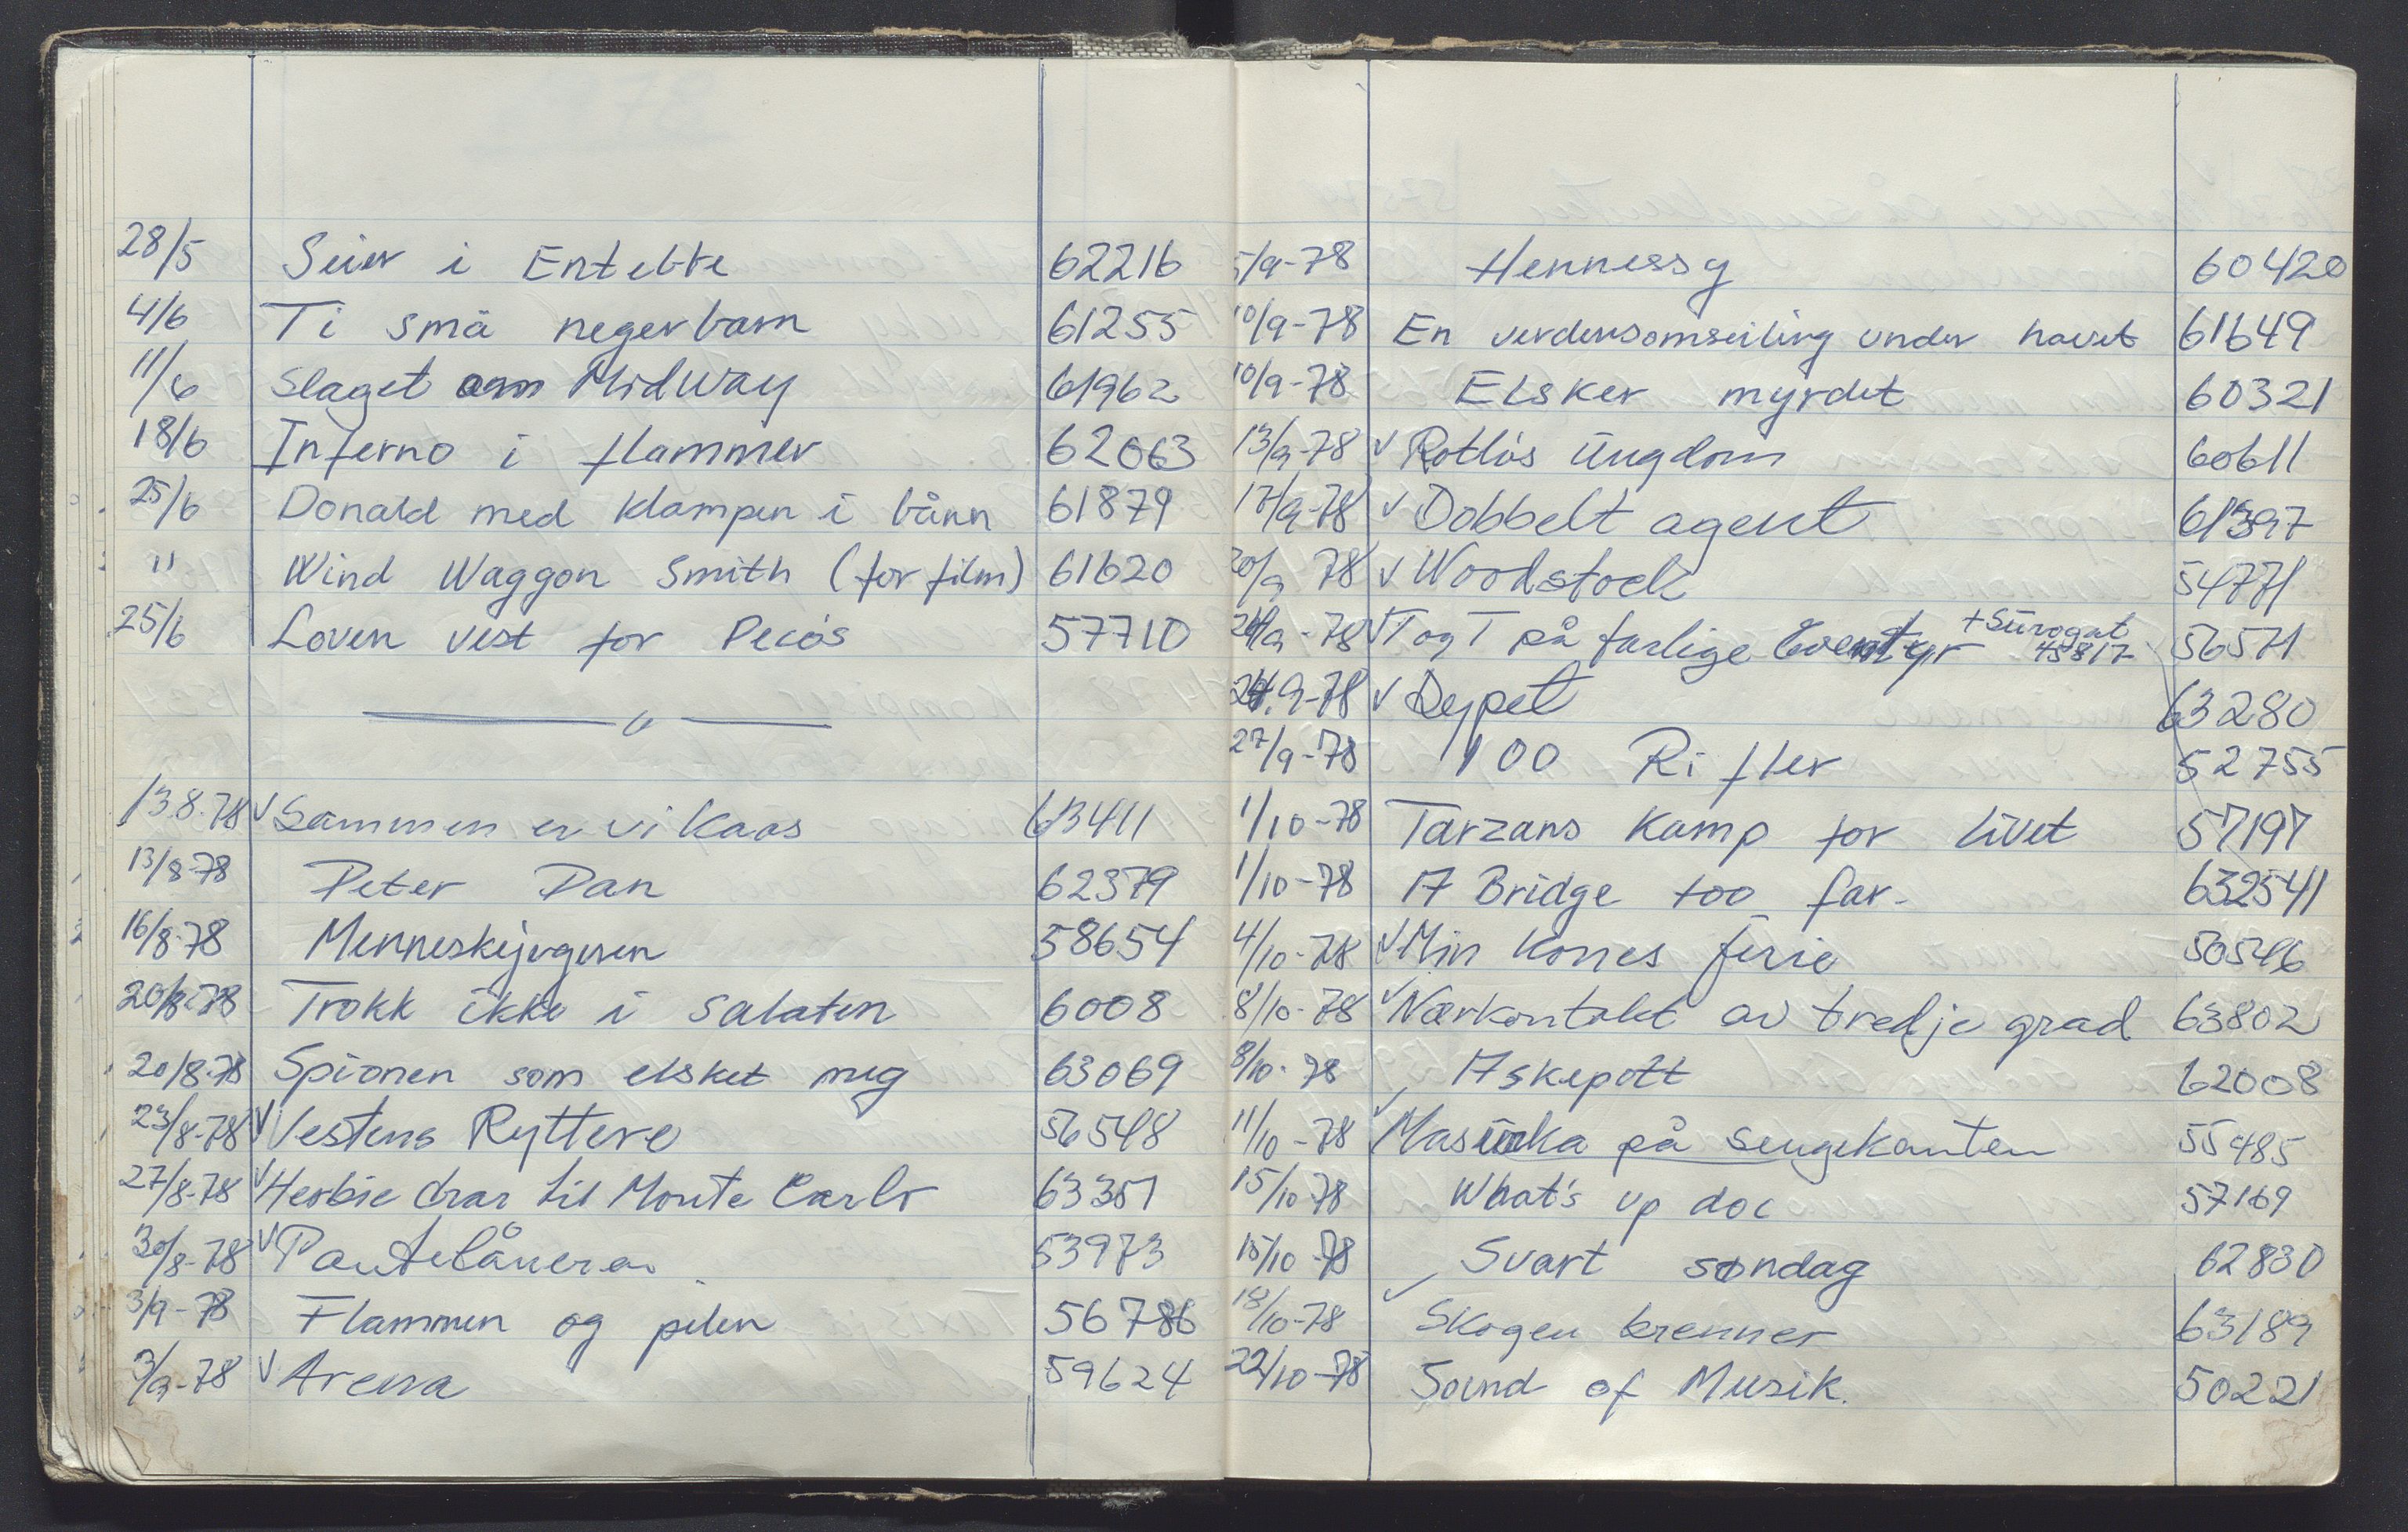 28/5 Seier i Entebbe 62216
4/6 Ti små negerbarn 61255
11/6 Slaget om Midway 61962
18/6 Inferno i flammer 62063
25/6 Donald med klampen i bånn 61879
" Wind Waggon Smith (for film) 61620
25/6 Loven vest for Pecos 57710
13.8.78 ✓ Sammen er vi Kaos 63411
13/8-78 Peter Pan 62379
16/8-78 Menneskejegeren 58654
20/8-78 Tråkk ikke i salaten 6008
20/8-78 Spionen som elsket meg 63069
23/8-78 ✓ Vestens Ryttere 56548
27/8-78 ✓ Herbie drar til Monte Carlo 63351
30/8-78 ✓ Pantelåneren 53973
3/9-78 Flammen og pilen 56786
3/9-78 ✓ Arena 59624
5/9-78 Hennessy 60420
10/9-78 En verdensomseiling under havet 61649
10/9-78 Elsker myrdet 60321
13/9-78 ✓ Rotløs Ungdom 60611
17/9-78 ✓ Dobbelt agent 61397
20/9 78 ✓ Woodstock 54771
24/9-78 ✓ T og T på farlige Eventyr + Surogat 45817 56571
24.9-78 ✓ Dypet 63280
27/9-78 100 Rifler 52755
1/10-78 Tarzans Kamp for livet 57197
1/10-78 A Bridge too far- 632541
4/10-78 ✓ Min Kones ferie 50546
8/10-78 ✓ Nærkontakt av tredje grad 63802
8/10-78 Askepott 62008
11/10-78 ✓ Masurka på sengekanten 55485
15/10 78 What's up doc 57169
15/10 78 Svart søndag 62830
18/10-78 ✓ Skogen brenner 63189
22/10-78 Sound of Musik. 50221